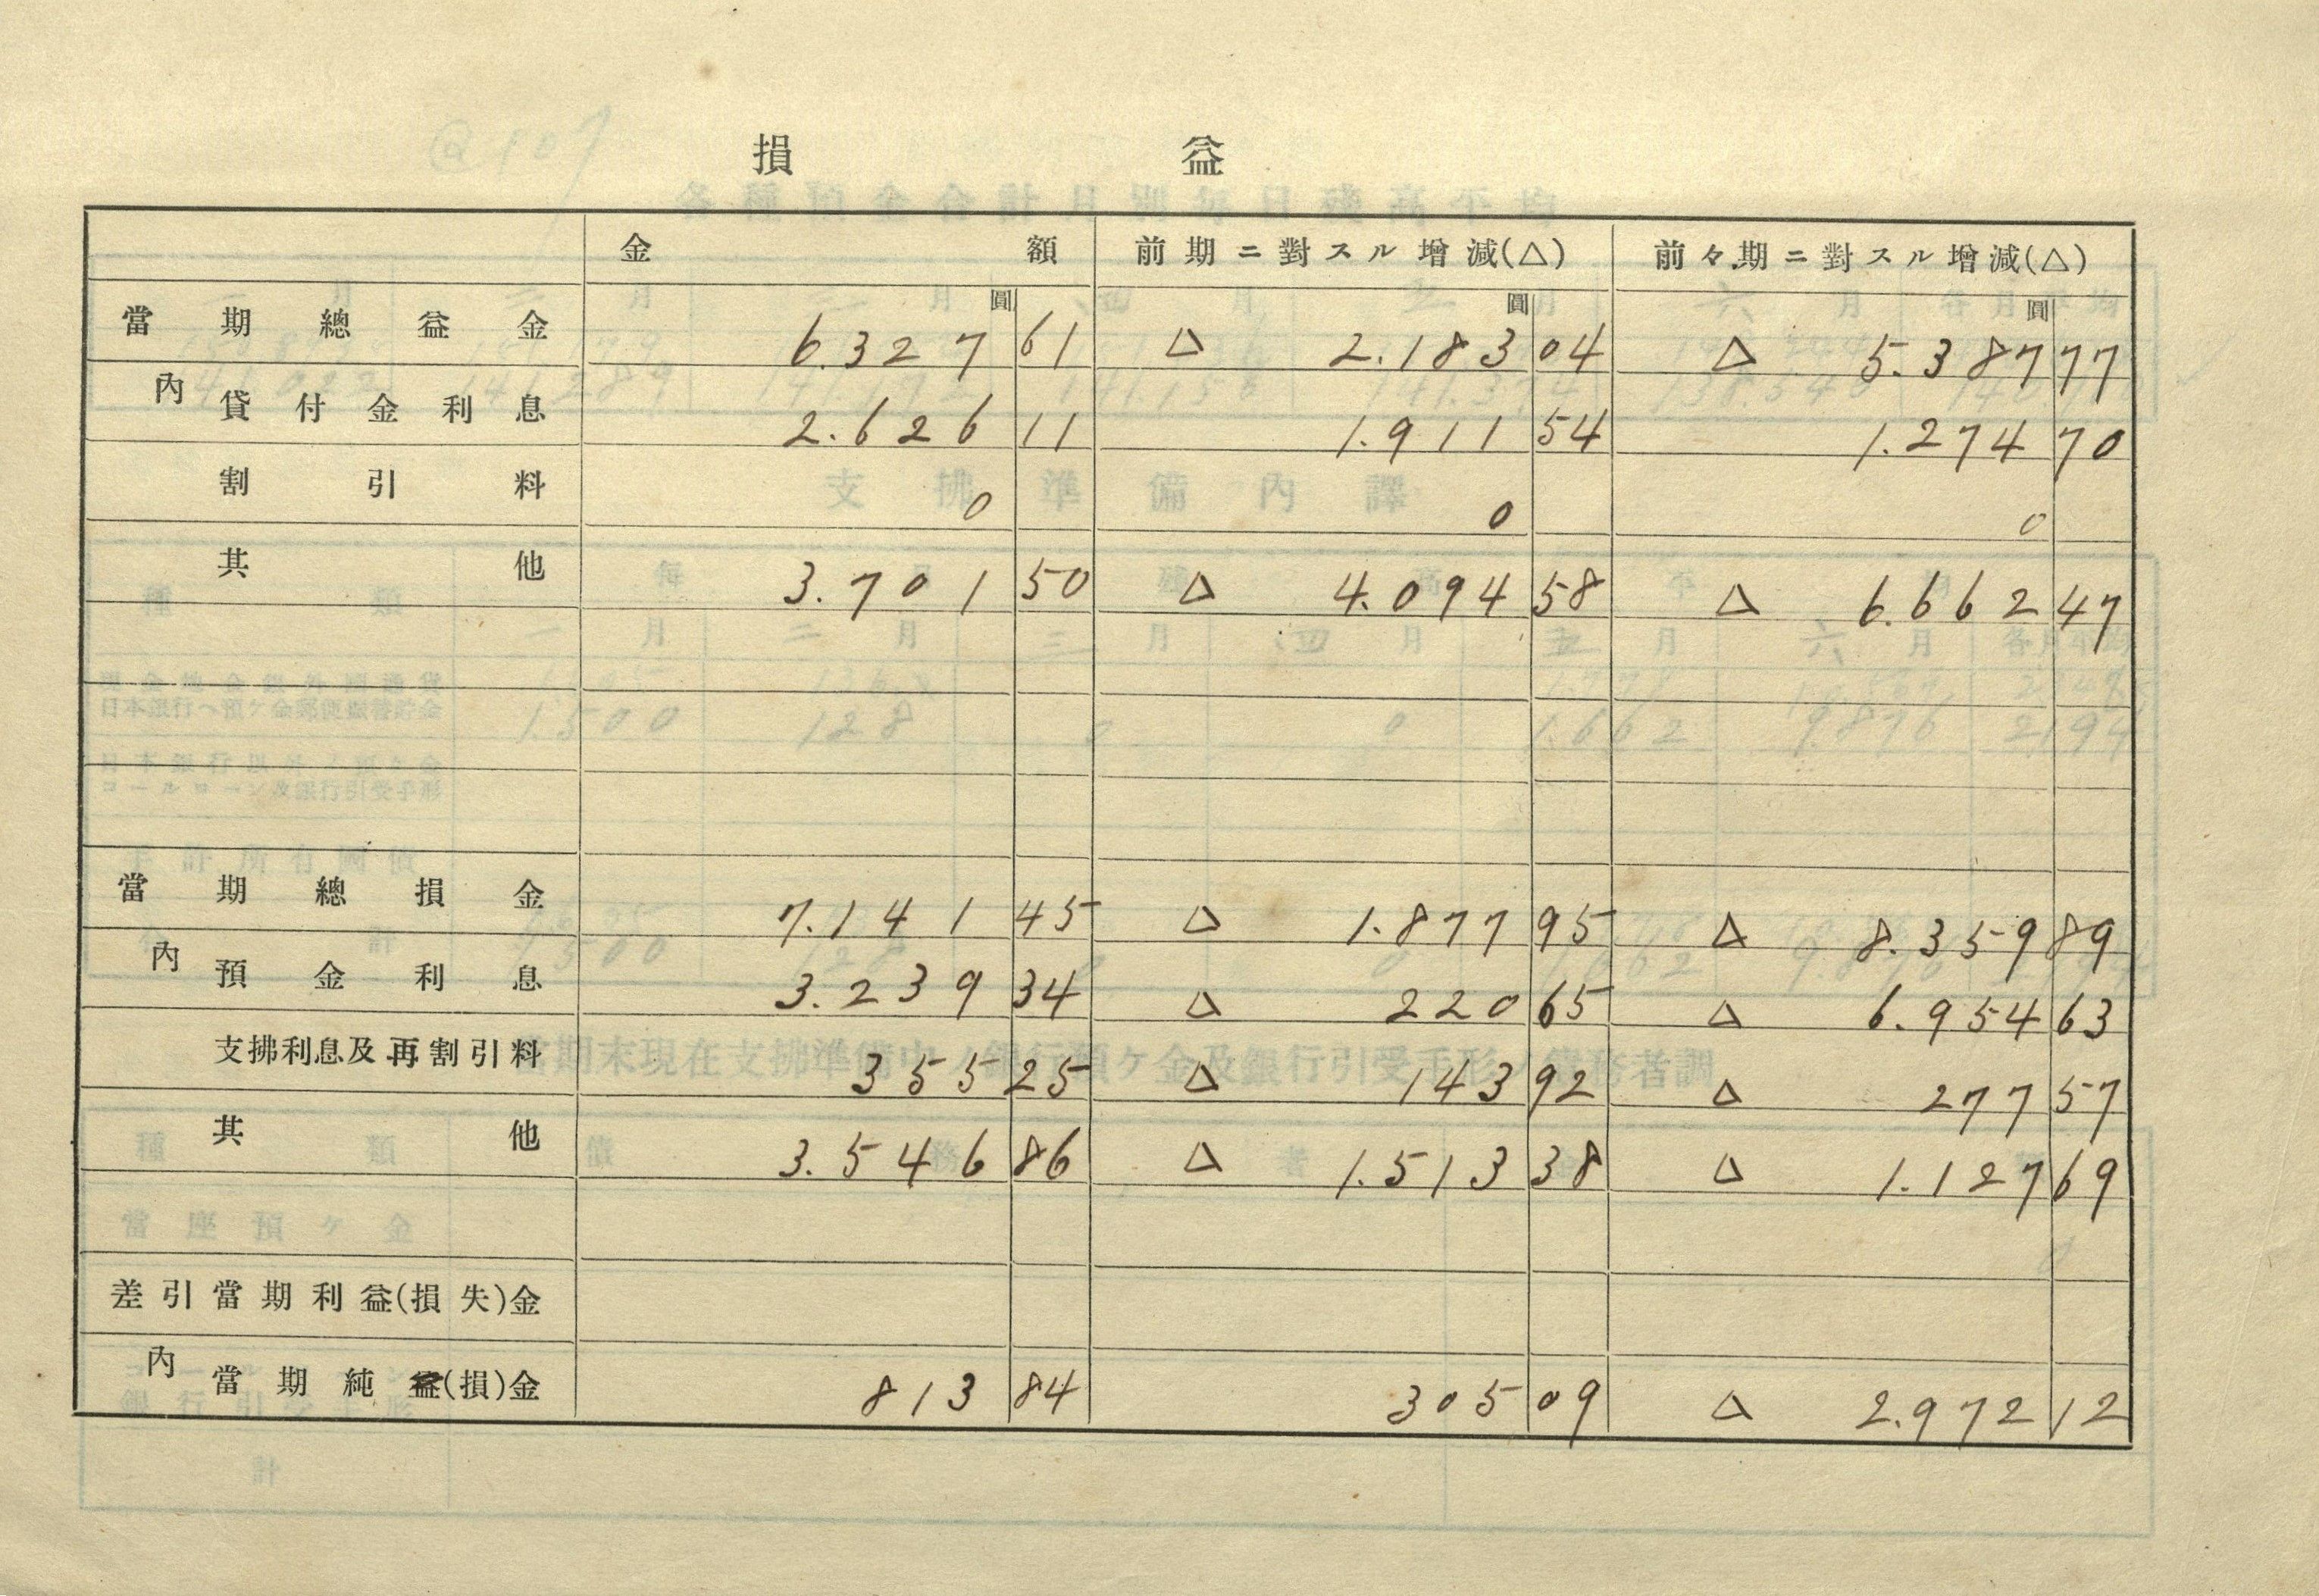 損益
金額 前期ニ對スル增減(△) 前々期ニ對スル增減(△)
圓 圓 圓
當期總益金 6.327 61 △ 2.183 04 △ 5.387 77
內 貸付金利息 2.626 11 1.911 54 1.274 70
割引料 0 0 0
其他 3.701 50 △ 4.094 58 △ 6.662 47
當期總損金 7.141 45 △ 1.877 95 △ 8.359 89
內 預金利息 3.239 34 △ 220 65 △ 6.954 63
支拂利息及再割引料 355 25 △ 143 92 △ 277 57
其他 3.546 86 △ 1.513 38 △ 1.127 69
差引當期利益(損失)金
內 當期純益(損)金 813 84 305 09 △ 2.972 12